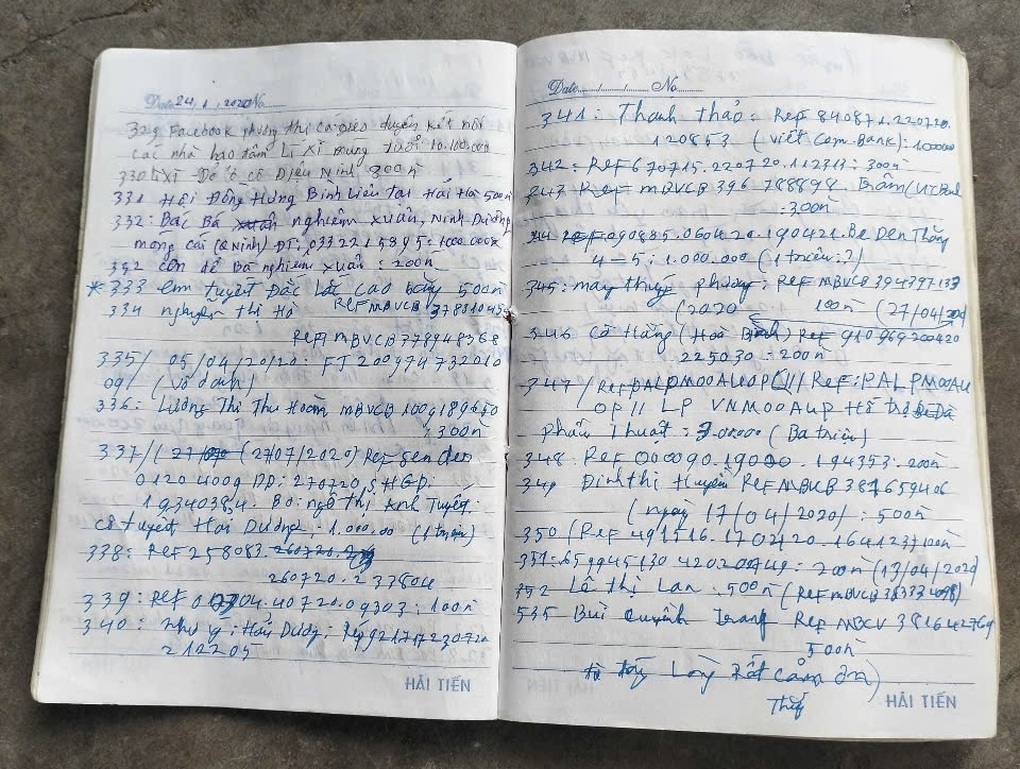 Date 24/1/2020 No
329 Facebook phương thị ca dao duyên kết nối
các nhà hảo tâm lì xì mừng tuổi 10.100.000
330 lì xì cô Diệu Ninh 300n
331 Hội Đồng Hưng Bình Liêu tại Hải Hà 500n
332: Bác Bá nghiêm xuân, Ninh Dương
móng cái (Q Ninh) ĐT: 0332215895: 1000 000
392 con dể Bá nghiêm xuân: 200n
* 333 em tuyết Đắc Lắc cao bằng 500n
334 nguyễn thị Hà Ref MBVCB 378810459
Ref MBVCB 378948368
335/ 05/04/20/20: FT 200974732010
09/ (vô danh)
336: Lương Thị Thu Hoàn MBVCB 1009189650
300n
337/ (27/07/2020) Ref Sender
0120 4009 DD: 270720, SHGD:
19340384. BO: ngô thị Anh Tuyết:
cô tuyết Hải Dương: 1.000.00 (1 triệu)
338: Ref 258083. 260720.
260720. 237804
339: Ref 0 04.40720.09303: 100n
340: như ý: Hải Dương: Ref 921717230720
212205
HẢI TIẾN
Date / / No
341: Thanh thảo: Ref 840871.220720.
120853 (Viết Com-Bank): 100000
342: Ref 670715.220720.112313: 300n
343 Ref MBVCB 396 788898 Trâm (VTBank
: 300n
344 Ref 090885.060420.190421. Be Den Tháng
4-5: 1.000.000 (1 triệu:?)
345: may thúy phương: Ref MBVCB 394397137
(2020 100n (27/04/2020)
346 Cô Hằng (Hoà Bình) Ref 910969200420
225030: 200n
347/ Ref PALPM00AUOP(1)/ Ref: PALPM00AU
OP11 LP VNM00AUP Hỗ trợ
phẩu thuật: 3.00.000 (Ba triệu)
348: Ref 000090.190 0.194353: 200n
349 Đinh thị Huyền Ref MBVCB 387659406
(ngày 17/04/2020): 500n
350 (Ref 491516.170420.164123) 100n
351: 659945130 42020 0749: 200n (13/04/2020)
352 Lê thị Lan: 500n (Ref MBVCB 383734098)
535 Bùi quỳnh trang Ref MBCV 381642769
500n
từ đáy Lòng Rất cảm ơn)
HẢI TIẾN